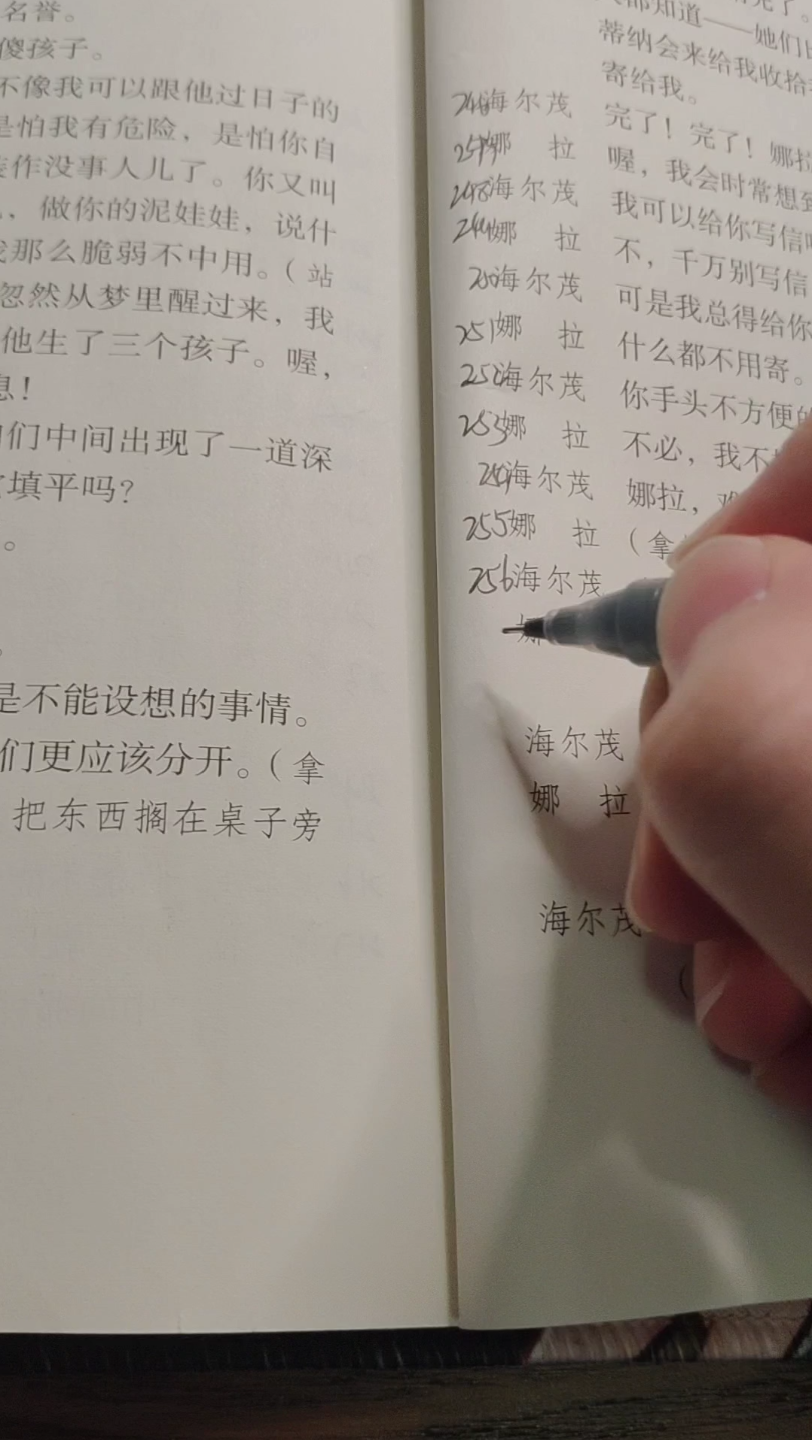 名誉。
傻孩子。
不像我可以跟他过日子的
是怕我有危险，是怕你自
装作没事人儿了。你又叫
，做你的泥娃娃，说什
我那么脆弱不中用。（站
忽然从梦里醒过来，我
他生了三个孩子。喔，
息！
们中间出现了一道深
填平吗？
。
。
是不能设想的事情。
们更应该分开。（拿
把东西搁在桌子旁
完了。
都知道——她们
蒂纳会来给我收拾
寄给我。
海尔茂 完了！完了！娜拉
娜 拉 喔，我会时常想到
248海尔茂 我可以给你写信吗
娜 拉 不，千万别写信
250海尔茂 可是我总得给你
251娜 拉 什么都不用寄。
252海尔茂 你手头不方便的
253娜 拉 不必，我不
254海尔茂 娜拉，难
255娜 拉 （拿
256海尔茂
娜
海尔茂
娜 拉
海尔茂
（